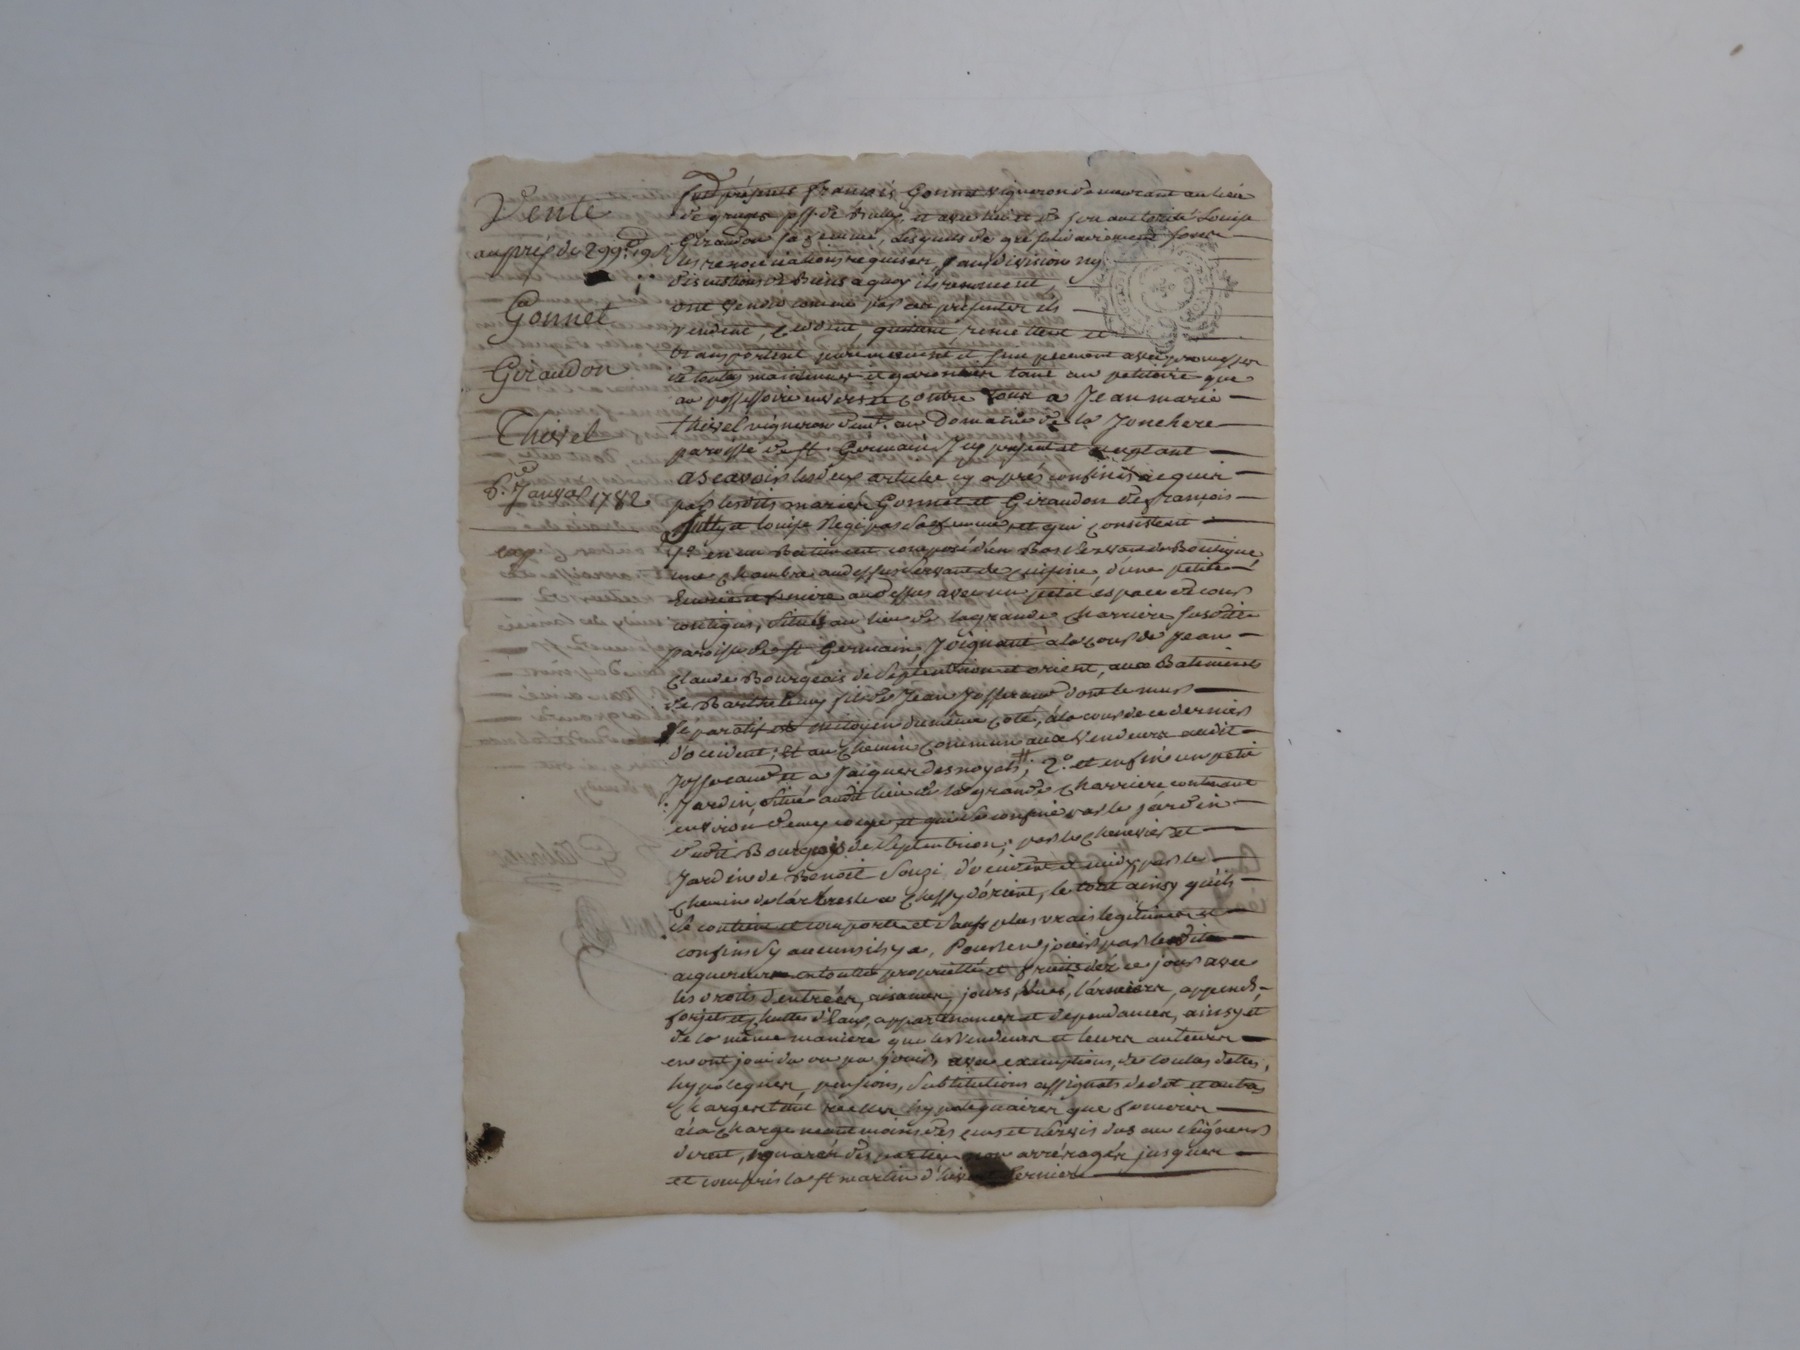 Vente
au prix de 299# 19 s
Gonnet
Giraudon
Thivel
8e Janvar 1782
exp
fut présent françois Gonnet vigneron demeurant au lieu
de gruges pss. de Bully et avec lui et de son autorité Louise
Giraudon sa femme, lesquels de gré solidairement sous
les renonciations requises, sans division ny
discustions de biens a quoy ils renoncent,
ont vendu comme par ces présentes ils
vendent, cedent, quittent remettent et
transportent purement et simplement avec promesses
de toutes maintenues et garenties tant au petitoire que
au possessoire envers et contre tous a Jean marie
thivel vigneron demt. au Domaine de la Jonchere
paroisse de st. Germain, Icy présent et acceptant
ascavoir les deux articles cy après confinés acquis
par lesdits mariés Gonnet et Giraudon de françois
et Louise sa femme et qui consistent
1°. en un Batiment composé d'un Bas servant de Boutique
une chambre audessus servant de cuisine, d'une petite
Ecurie et feniere audessus avec un petit espace de cour
contigus, situés au lieu de la grande charriere susdite
paroisse de st Germain, Joignant à la cour de Jean
Claude Bourgeois de septentrion et orient, aux Batiments
de Barthelemy fils de Jean Josserand dont le mur
separatif est mitoyen du même coté, à la cour de ce dernier
d'occident; Et au chemin commun aux vendeurs audit
Josserand et a ; 2°. et enfin un petit
Jardin, situé audit lieu de la grande charriere contenant
environ demy coupe, et qui se confine par le jardin
dudit Bourgeois de septentrion; par le chenevier et
Jardin de Benoit d'occident et midy, par le
chemin de l'arbresle a chessy d'orient, le tout ainsy qu'il
se contient et comporte et sauf plus vrais légitimes et
confins sy aucuns il y a, Pour en jouir par ledit
acquereur en toutte propriétté et fruits dez ce jour avec
les droits d'entrées, aisances, jours, vues, larmiers, appends,
forjets et chuttes d'eaux, appartenances et dépendances, ainsy et
de la même maniere que les vendeurs et leurs auteurs
en ont joui du ou pu jouir, avec exemptions, de toutes dettes,
hypoteques, pensions, substitutions assignats de dot et autres
charges tant réelles hypotequaires que foncieres
à la charge neantmoins des cens et servis dus au seigneur
direct, égaréz des parties non arréragés jusques
et compris la st martin d'hiver derniere